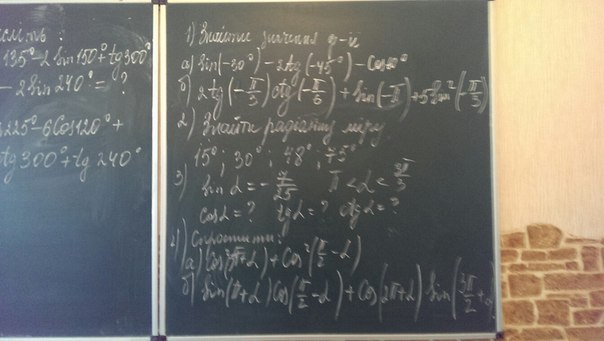 135°-2 sin150°+tg300°
- 2 sin 240° = ?
225°-6cos120°+
tg300°+tg 240°
1) Знайти значення ф-ії
а) sin(-30°) - 2tg(-45°) - cos
б) 2tg(-π/3) ctg(-π/6) + sin(-π) + 5 sin²(-π/3)
2) Знайти радіанну міру
15°; 30°; 48°; 75°
3) sin α = - 7/25   π < α <
cos α = ?   tg α = ?   ctg α = ?
4) Спростити:
а) cos²(π+α) + cos²(π/2 - α)
б) sin(π+α) cos(π/2 - α) + cos(2π+α) sin(3π/2 + α